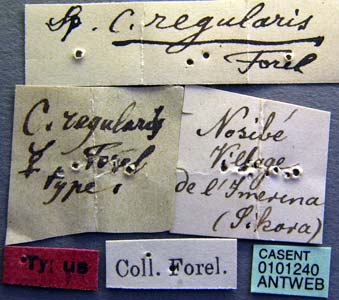 Sp. C. regularis
Forel
C. regularis
☿ Forel
type.
Nosibé
Village
de l'Imerina
(Sikora)
Ty: us
Coll. Forel.
CASENT
0101240
ANTWEB